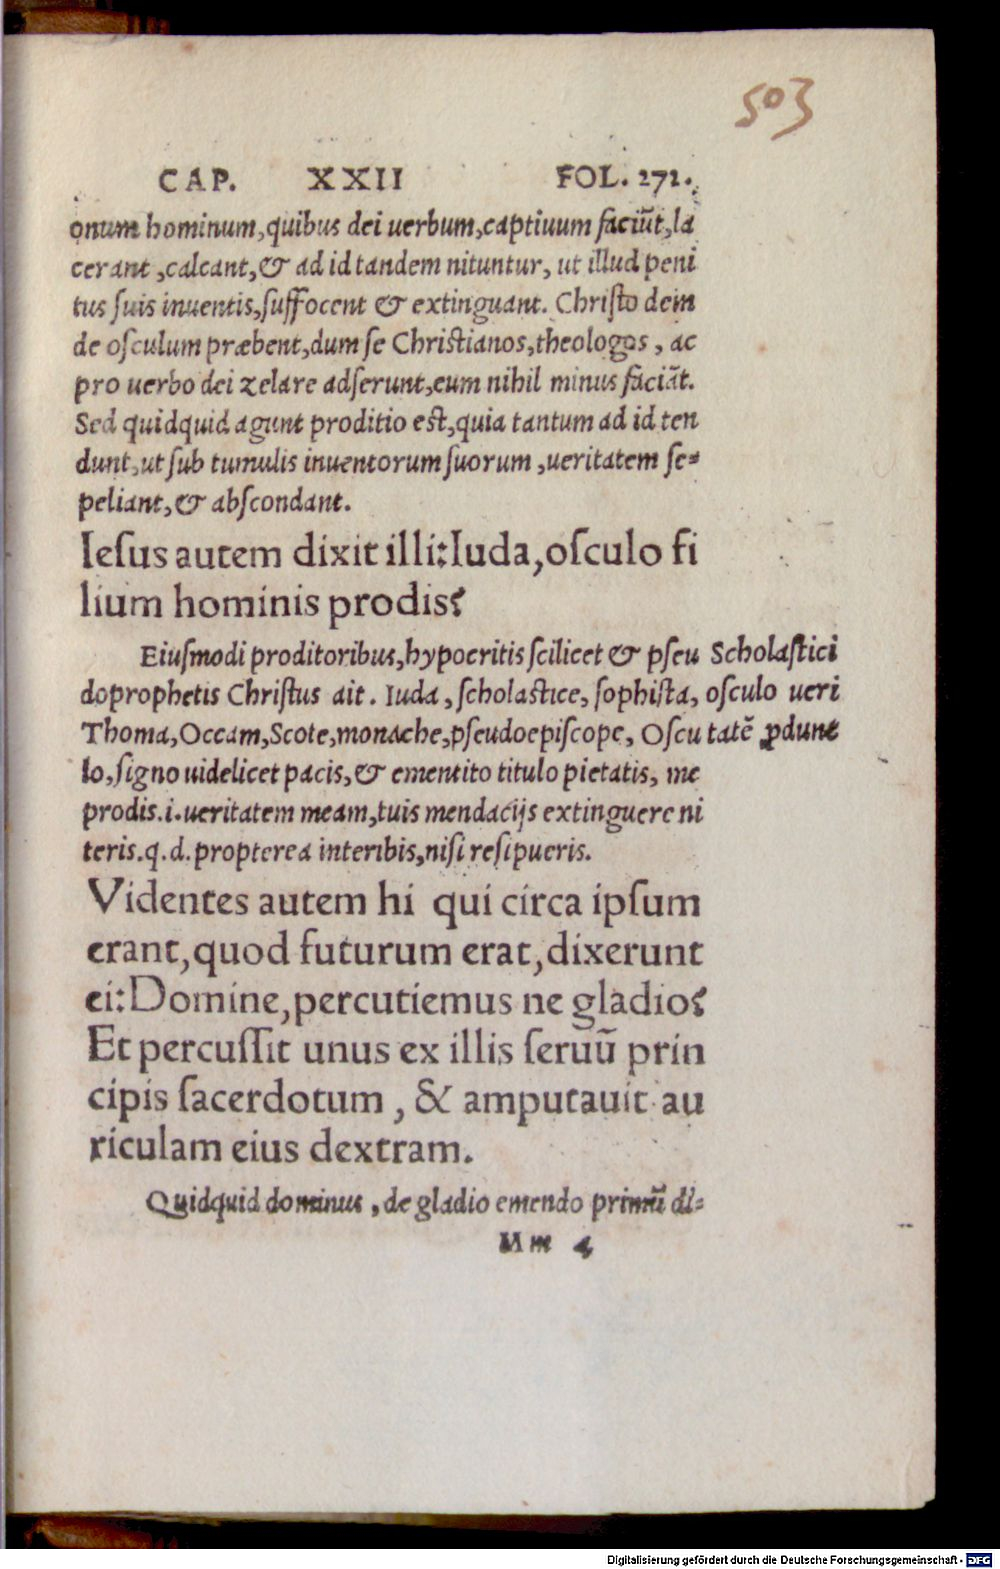 503
CAP. XXII FOL. 271.
onum hominum,quibus dei uerbum,captiuum faciūt,la
cerant,calcant,& ad id tandem nituntur, ut illud peni
tus suis inuentis,suffocent & extinguant. Christo dein
de osculum præbent,dum se Christianos,theologos, ac
pro uerbo dei zelare adserunt,cum nihil minus faciāt.
Sed quidquid agunt proditio est,quia tantum ad id ten
dunt,ut sub tumulis inuentorum suorum,ueritatem se-
peliant,& abscondant.
Iesus autem dixit illi:Iuda,osculo fi
lium hominis prodis?
Eiusmodi proditoribus,hypocritis scilicet & pseu
doprophetis Christus ait. Iuda, scholastice, sophista,
Thoma,Occam,Scote,monache,pseudoepiscope, Oscu
lo,signo uidelicet pacis,& ementito titulo pietatis, me
prodis.i.ueritatem meam,tuis mendacijs extinguere ni
teris.q.d.propterea interibis,nisi resipueris.
Scholastici
osculo ueri
tatē ꝓdunt
Videntes autem hi qui circa ipsum
erant,quod futurum erat,dixerunt
ei:Domine,percutiemus ne gladio?
Et percussit unus ex illis seruū prin
cipis sacerdotum, & amputauit au
riculam eius dextram.
Quidquid dominus, de gladio emendo primū di-
Mm 4
Digitalisierung gefördert durch die Deutsche Forschungsgemeinschaft - DFG